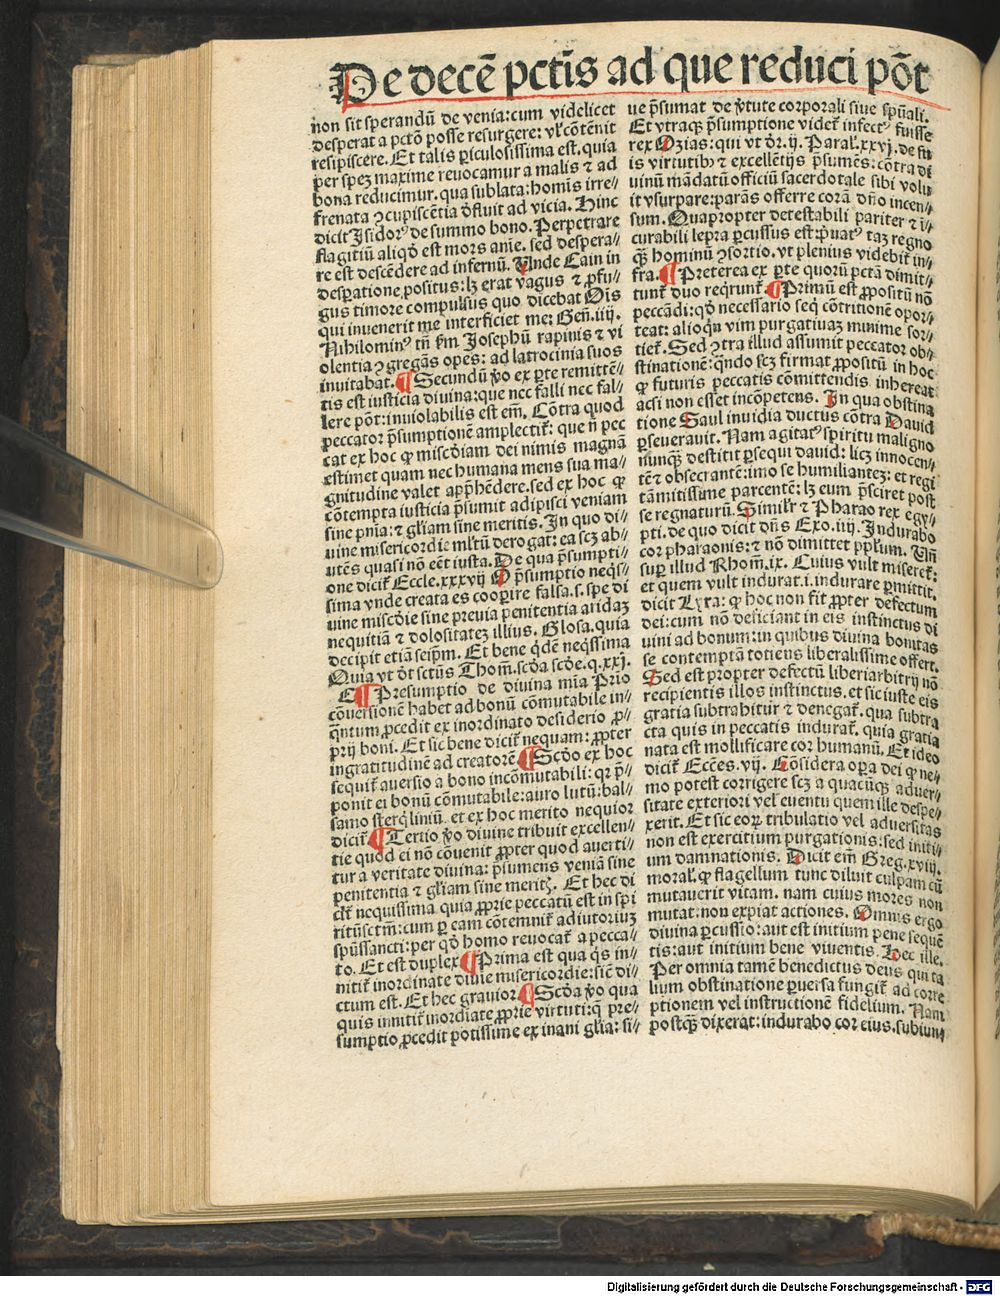 De decē pctīs ad que reduci pōt
non sit sperandū de venia: cum videlicet
desperat a pctō posse resurgere: vl' cōtēnit
resipiscere. Et talis ꝑiculosissima est. quia
per spez maxime reuocamur a malis ⁊ ad
bona reducimur. qua sublata: homīs irre-
frenata ꝯcupiscētia defluit ad vicia. Hinc
dicit Isidorꝰ de summo bono. Perpetrare
flagitiū aliqd est mors anīe. sed despera-
re est descēdere ad infernū. Unde Cain in
desꝑatione positus: lꝫ erat vagus ⁊ ꝓfu-
gus timore compulsus quo dicebat Oīs
qui inuenerit me interficiet me: Geñ. iiij.
Nihilominꝰ tñ fm Josephū rapinis ⁊ vi
olentia ꝯgregās opes: ad latrocinia suos
inuitabat. ¶ Secundū ṽo ex ꝑte remittē-
tis est iusticia diuina: que nec falli nec fal-
lere pōt: inuiolabilis est em̄. Cōtra quod
peccator p̄sumptionē amplectit̄: que ñ pec
cat ex hoc ꝙ miscd̄iam dei nimis magnā
estimet quam nec humana mens sua ma-
gnitudine valet app̄hēdere. sed ex hoc ꝙ
cōtempta iusticia p̄sumit adipisci veniam
sine pn̄ia: ⁊ gl̄iam sine meritis. In quo di-
uine misericordie ml̄tū derogat: ea scꝫ ab-
utēs quasi nō eēt iusta. De qua p̄sumpti-
one dicit̄ Eccle. xxxvij O p̄sumptio neqs̄-
sima vnde creata es cooꝑire falsa. s. spe di
uine miscd̄ie sine preuia penitentia aridaꝫ
nequitiā ⁊ dolositateꝫ illius. Glosa. quia
decipit etiā seip̄m. Et bene qd̄ē neqs̄sima
Quia vt dr̄ sctūs Thom̄. scd̄a scd̄e. q. xxj.
¶ Presumptio de diuina mīa Prio
cōuersionē habet ad bonū cōmutabile in-
q̄ntum ꝓcedit ex inordinato desiderio ꝓ-
prij boni. Et sic bene dicit̄ nequam: ꝓpter
ingratitudinē ad creatorē ¶ Scd̄o ex hoc
sequit̄ auersio a bono incōmutabili: qꝛ p̄-
ponit ei bonū cōmutabile: auro lutū: bal-
samo sterq̄liniū. et ex hoc merito nequior
dicit̄ ¶ Tertio ṽo diuine tribuit excellen-
tie quod ei nō cōuenit ꝓpter quod auerti-
tur a veritate diuina: p̄sumens veniā sine
penitentia ⁊ gl̄iam sine meritꝭ. Et hec di
cit̄ nequissima quia ꝓprie peccatū est in spi
ritū sctm̄: cum ꝑ eam cōtemnit̄ adiutoriuꝫ
spūssancti: per qd̄ homo reuocat̄ a pecca-
to. Et est duplex ¶ Prima est qua qs̄ in-
nitit̄ inordinate diuīe misericordie: sic̄ di-
ctum est. Et hec grauior ¶ Scd̄a ṽo qua
quis innitit̄ inordiate ꝓprie virtuti: q̄ pre-
sumptio ꝓcedit potissime ex inani gl̄ia: si-
ue p̄sumat de ṽtute corporali siue spūali.
Et vtraqꝫ p̄sumptione videt̄ infectꝰ fuisse
rex Ozias: qui vt dr̄. ij. Paral'. xxvj. de su
is virtutibꝫ ⁊ excellētijs p̄sumēs: cōtra di
uinū mādatū officiū sacerdotale sibi volu
it vsurpare: parās offerre corā dn̄o incen-
sum. Quapropter detestabili pariter ⁊ ī-
curabili lepra ꝑcussus est: p̄uatꝰ taꝫ regno
qꝫ̄ hominū ꝯsortio. vt plenius videbit̄ in-
fra. ¶ Preterea ex ꝑte quorū pctā dimit-
tunt̄ duo reqrunt̄. ¶ Primū est ꝓpositū nō
peccādi: qd̄ necessario seq̄ cōtritionē opor-
teat: alioq̄n vim purgatiuaꝫ minime sor-
tiet̄. Sed ꝯtra illud assumit peccator ob-
stinationē: qn̄do scꝫ firmat ꝓpositū in hoc
ꝙ futuris peccatis cōmittendis inhereat
acsi non esset incōpetens. In qua obstina
tione Saul inuidia ductus cōtra Dauid
ꝑseuerauit. Nam agitatꝰ spiritu maligno
nunqꝫ̄ destitit ꝑsequi dauid: licꝫ innocen-
tē ⁊ obsecrantē: imo se humilianteꝫ: et regi
tā mitissime parcentē: lꝫ eum p̄sciret post
se regnaturū. Simil'r ⁊ Pharao rex egy-
pti. de quo dicit dn̄s Exo. iiij. Indurabo
cor pharaonis: ⁊ nō dimittet pplm̄. Un̄
suꝑ illud Rhom̄. ix. Cuius vult miseret̄:
et quem vult indurat. i. indurare ꝑmittit.
dicit Lyra: ꝙ hoc non fit ꝓpter defectum
dei: cum nō deficiant in eis instinctus di
uini ad bonum: in quibus diuina bonitas
se contemptā totiens liberalissime offert.
Sed est propter defectū liberi arbitrij nō
recipientis illos instinctus. et sic iuste eis
gratia subtrahitur ⁊ denegat̄. qua subtra
cta quis in peccatis indurat̄. quia gratia
nata est mollificare cor humanū. Et ideo
dicit̄ Ecces. vij. Cōsidera oꝑa dei ꝙ ne-
mo potest corrigere scꝫ a quacūqꝫ aduer-
sitate exteriori vel euentu quem ille despe-
xerit. Et sic eoꝝ tribulatio vel aduersitas
non est exercitium purgationis: sed initi-
um damnationis. Dicit em̄ Greg. xviij.
moral'. ꝙ flagellum tunc diluit culpam cū
mutauerit vitam. nam cuius mores non
mutat: non expiat actiones. Omnis ergo
diuina ꝑcussio: aut est initium pene sequē
tis: aut initium bene viuentis. Hec ille.
Per omnia tamē benedictus deus qui ta
lium obstinatione ꝑuersa fungit̄ ad corre
ptionem vel instructionem fidelium. Nam
postqꝫ̄ dixerat: indurabo cor eius. subiunx
Digitalisierung gefördert durch die Deutsche Forschungsgemeinschaft - DFG